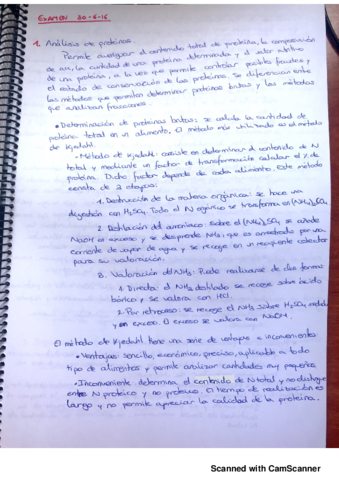 EXAMEN 30-6-16
1. Análisis de proteínas.
Permite averiguar el contenido total de proteína, la composición
de aa, la cantidad de una proteína determinada y el valor nutritivo
de una proteína, a la vez que permite controlar posibles fraudes y
el estado de conservación de las proteínas. Se diferencian entre
los métodos que permiten determinar proteínas brutas y los métodos
que analizan fracciones.
• Determinación de proteínas brutas: se calcula la cantidad de
proteína total en un alimento. El método más utilizado es el método
de Kjeldahl.
- Método de Kjeldahl: consiste en determinar el contenido de N
total y mediante un factor de transformación calcular el % de
proteína. Dicho factor depende de cada alimento. Este método
consta de 3 etapas:
1. Destrucción de la materia orgánica: se hace una
digestión con H2SO4. Todo el N orgánico se transforma en (NH4)2SO4
2. Destilación del amoníaco: sobre el (NH4)2SO4 se añade
NaOH en exceso y se desprende NH3, que es arrastrado por una
corriente de vapor de agua y se recoge en un recipiente colector
para su valoración.
3. Valoración del NH3: Puede realizarse de dos formas
1. Directa: el NH3 destilado se recoge sobre ácido
bórico y se valora con HCl.
2. Por retroceso: se recoge el NH3 sobre H2SO4 medido
y en exceso. El exceso se valora con NaOH.
El método de Kjeldahl tiene una serie de ventajas e inconvenientes:
• Ventajas: sencillo, económico, preciso, aplicable a todo
tipo de alimentos y permite analizar cantidades muy pequeñas
• Inconveniente: determina el contenido de N total y no distingue
entre N proteico y no proteico. El tiempo de realización es
largo y no permite apreciar la calidad de la proteína.
Scanned with CamScanner